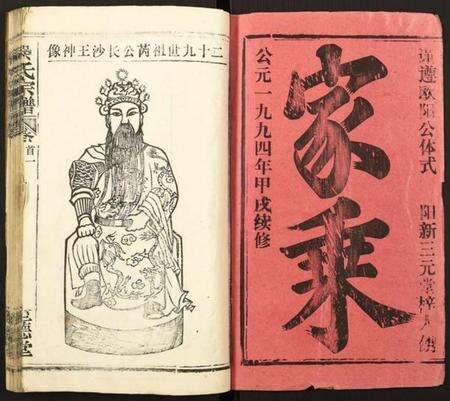 谨遵欧阳公体式 阳新三元堂梓人镌
家乘
公元一九九四年甲戌续修
二十九世祖芮公长沙王神像
吴氏宗谱
首一
堂